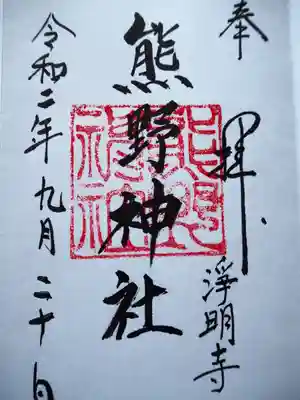 奉拝
浄明寺
熊野神社
令和二年九月二十日
熊野神社